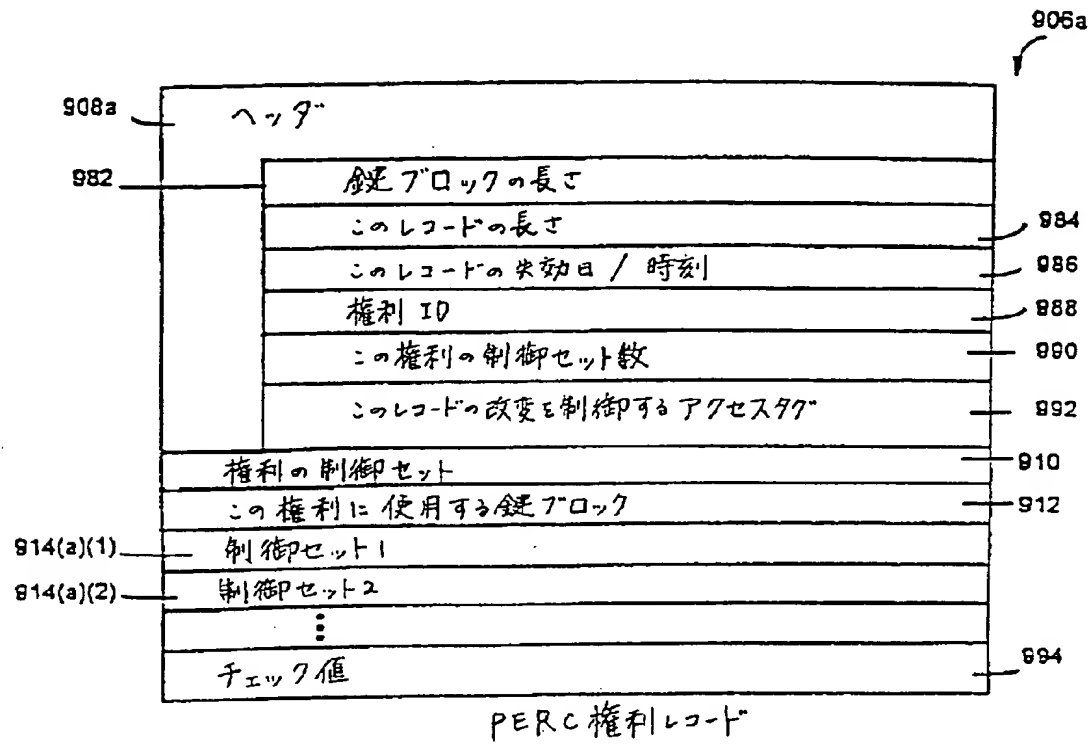 906a
908a ヘッダ
982 鍵ブロックの長さ
このレコードの長さ 984
このレコードの失効日 / 時刻 986
権利 ID 988
この権利の制御セット数 990
このレコードの改変を制御するアクセスタグ 992
権利の制御セット 910
この権利に使用する鍵ブロック 912
914(a)(1) 制御セット1
914(a)(2) 制御セット2
⋮
チェック値 994
PERC権利レコード